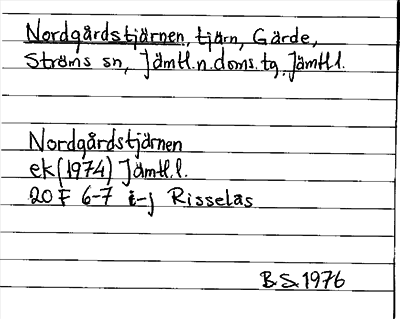 Nordgårdstjärnen, tjärn, Gärde,
Ströms sn, Jämtl.n.doms.tg, Jämtl.l.
Nordgårdstjärnen
ek (1974) Jämtl.l.
20 F 6-7 i-j Risselås
B.S. 1976